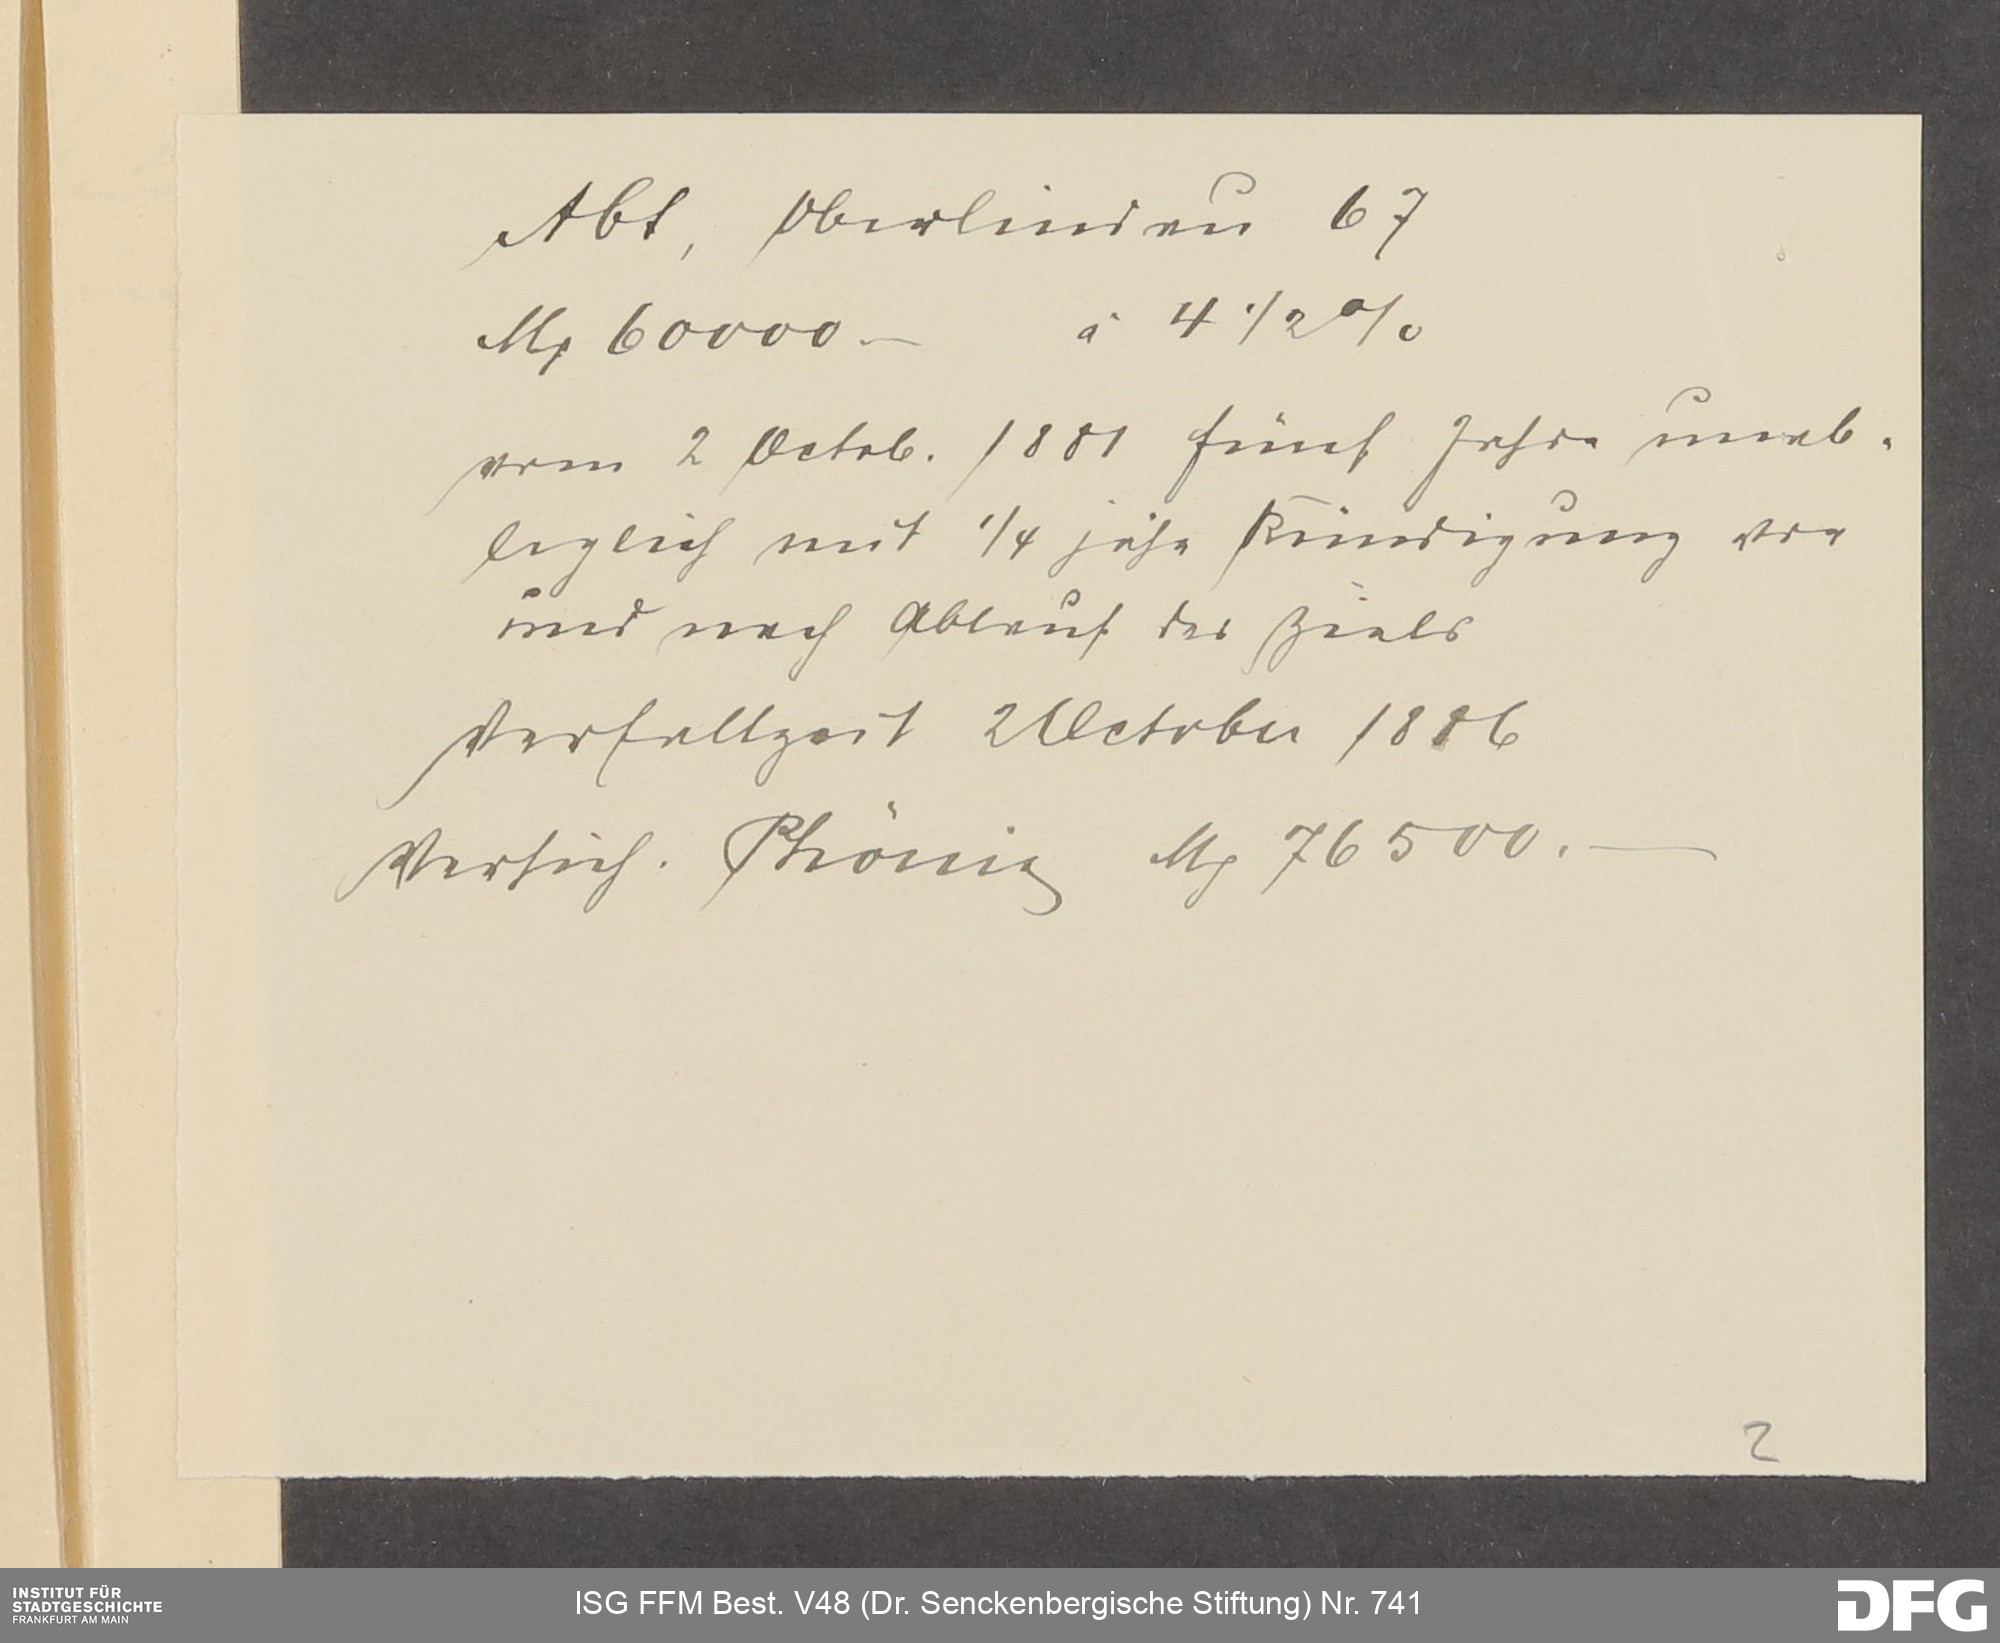 Abt, Oberlindau 67
Mk 60000.— à 4 1/2 %
vom 2 Octob. 1881 fünf Jahre unab-
leglich mit 1/4 jähr Kündigung vor
und nach Ablauf des Ziels
Verfallzeit 2 October 1886
Versich. Phönix Mk 76500.—
2
INSTITUT FÜR
STADTGESCHICHTE
FRANKFURT AM MAIN
ISG FFM Best. V48 (Dr. Senckenbergische Stiftung) Nr. 741
DFG